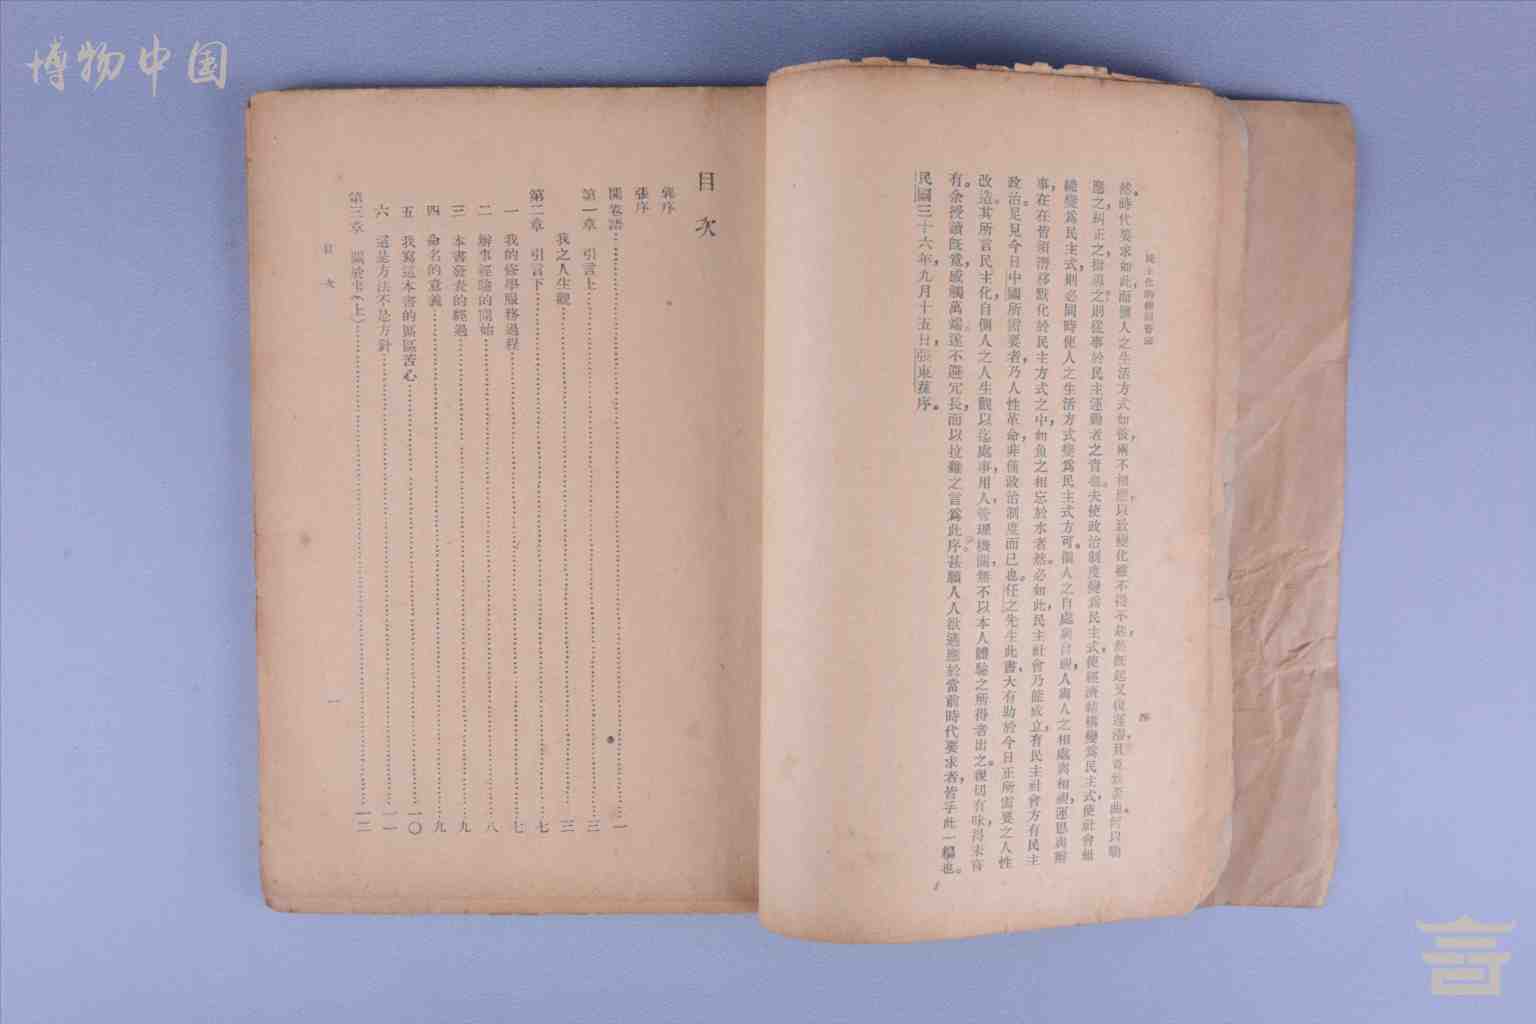 博物中国
民主化的機關管理
四
然。時代要求如此，而個人之生活方式如彼，兩不相應，以致變化雖不得不起，然既起又復遲滯且竟致歪曲。何以助
應之，糾正之，指導之，則從事於民主運動者之責也。夫使政治制度變爲民主式，使經濟結構變爲民主式，使社會組
織變爲民主式，則必同時使人之生活方式變爲民主式方可。個人之自處與自視，人與人之相處與相視，運思與辦
事，在在皆須潛移默化於民主方式之中，如魚之相忘於水者然。必如此，民主社會乃能成立，有民主社會方有民主
政治。足見今日中國所需要者，乃人性革命，非僅政治制度而已也。任之先生此書，大有助於今日正所需要之人性
改造。其所言民主化，自個人之人生觀以迄處事，用人，管理機關，無不以本人體驗之所得者出之。親切有味，得未嘗
有。余授讀既竟，感觸萬端，遂不避冗長，而以拉雜之言爲此序。甚願人人欲適應於當前時代要求者，皆手此一編也。
民國三十六年，九月十五日，張東蓀序。
目次
張序
開卷語 一
第一章 引言上 三
我之人生觀 三
第二章 引言下 七
一 我的修學服務過程 七
二 辦事經驗的開始 八
三 本書發表的經過 九
四 命名的意義 九
五 我寫這本書的區區苦心 一〇
六 這是方法不是方針 一一
第三章 關於事（上） 一二
目次
一